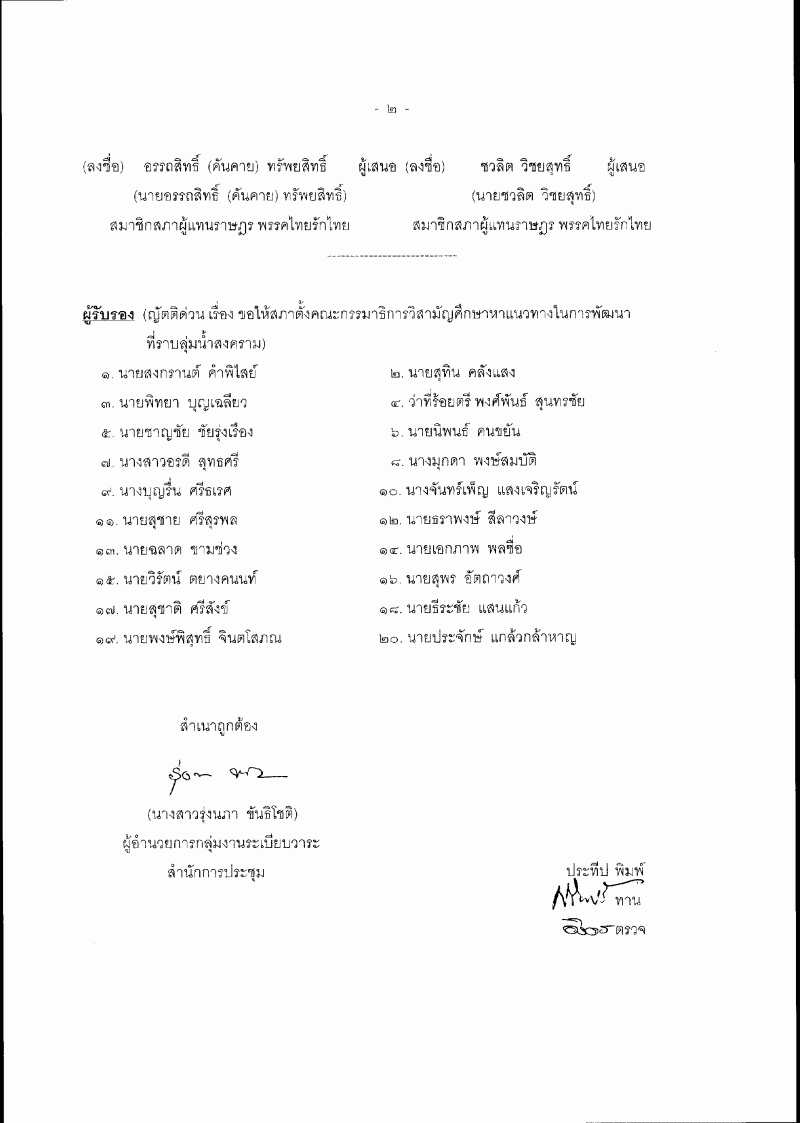 - ๒ -
(ลงชื่อ) อรรถสิทธิ์ (คันคาย) ทรัพยสิทธิ์ ผู้เสนอ (ลงชื่อ) ชวลิต วิชยสุทธิ์ ผู้เสนอ
(นายอรรถสิทธิ์ (คันคาย) ทรัพยสิทธิ์) (นายชวลิต วิชยสุทธิ์)
สมาชิกสภาผู้แทนราษฎร พรรคไทยรักไทย สมาชิกสภาผู้แทนราษฎร พรรคไทยรักไทย
ผู้รับรอง (ญัตติด่วน เรื่อง ขอให้สภาตั้งคณะกรรมาธิการวิสามัญศึกษาหาแนวทางในการพัฒนา
ที่ราบลุ่มน้ำสงคราม)
๑. นายสงกรานต์ คำพิไสย์ ๒. นายสุทิน คลังแสง
๓. นายพิทยา บุญเฉลียว ๔. ว่าที่ร้อยตรี พงศ์พันธ์ สุนทรชัย
๕. นายชาญชัย ชัยรุ่งเรือง ๖. นายนิพนธ์ คนขยัน
๗. นางสาวอรดี สุทธศรี ๘. นางมุกดา พงษ์สมบัติ
๙. นางบุญรื่น ศรีธเรศ ๑๐. นางจันทร์เพ็ญ แสงเจริญรัตน์
๑๑. นายสุชาย ศรีสุรพล ๑๒. นายธราพงษ์ สีลาวงษ์
๑๓. นายฉลาด ขามช่วง ๑๔. นายเอกภาพ พลซื่อ
๑๕. นายวิรัตน์ ตยางคนนท์ ๑๖. นายสุพร อัตถาวงศ์
๑๗. นายสุชาติ ศรีสังข์ ๑๘. นายธีระชัย แสนแก้ว
๑๙. นายพงษ์พิสุทธิ์ จินตโสภณ ๒๐. นายประจักษ์ แกล้วกล้าหาญ
สำเนาถูกต้อง
(นางสาวรุ่งนภา ขันธิโชติ)
ผู้อำนวยการกลุ่มงานระเบียบวาระ
สำนักการประชุม
ประทีป พิมพ์
ทาน
ตรวจ